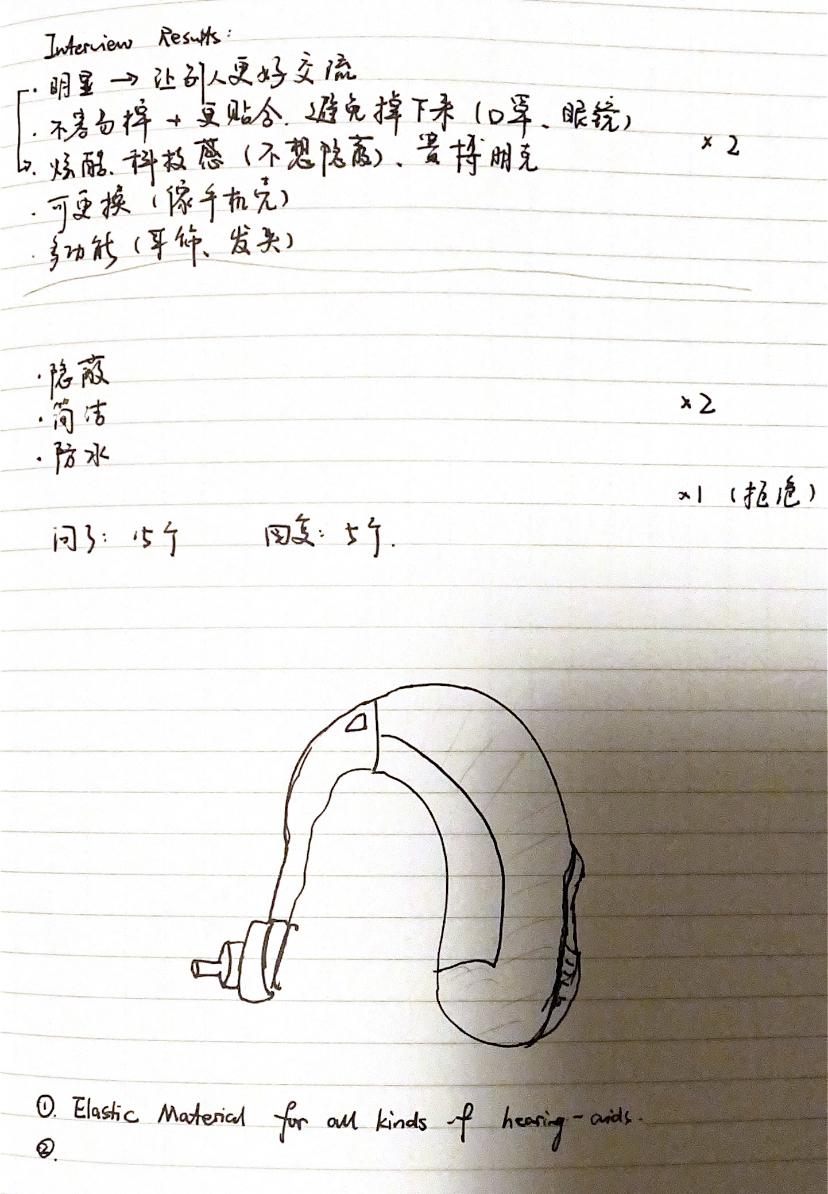 Interview Results:
· 明显 → 让别人更好交流
· 不容易掉 + 更贴合、避免掉下来（口罩、眼镜）
· 炫酷、科技感（不想隐蔽）、赛博朋克
× 2
· 可更换（像手机壳）
· 多功能（耳饰、发夹）
· 隐蔽
· 简洁
× 2
· 防水
× 1（拒绝）
问了：15个 回复：5个.
①. Elastic Material for all kinds of hearing-aids.
②.